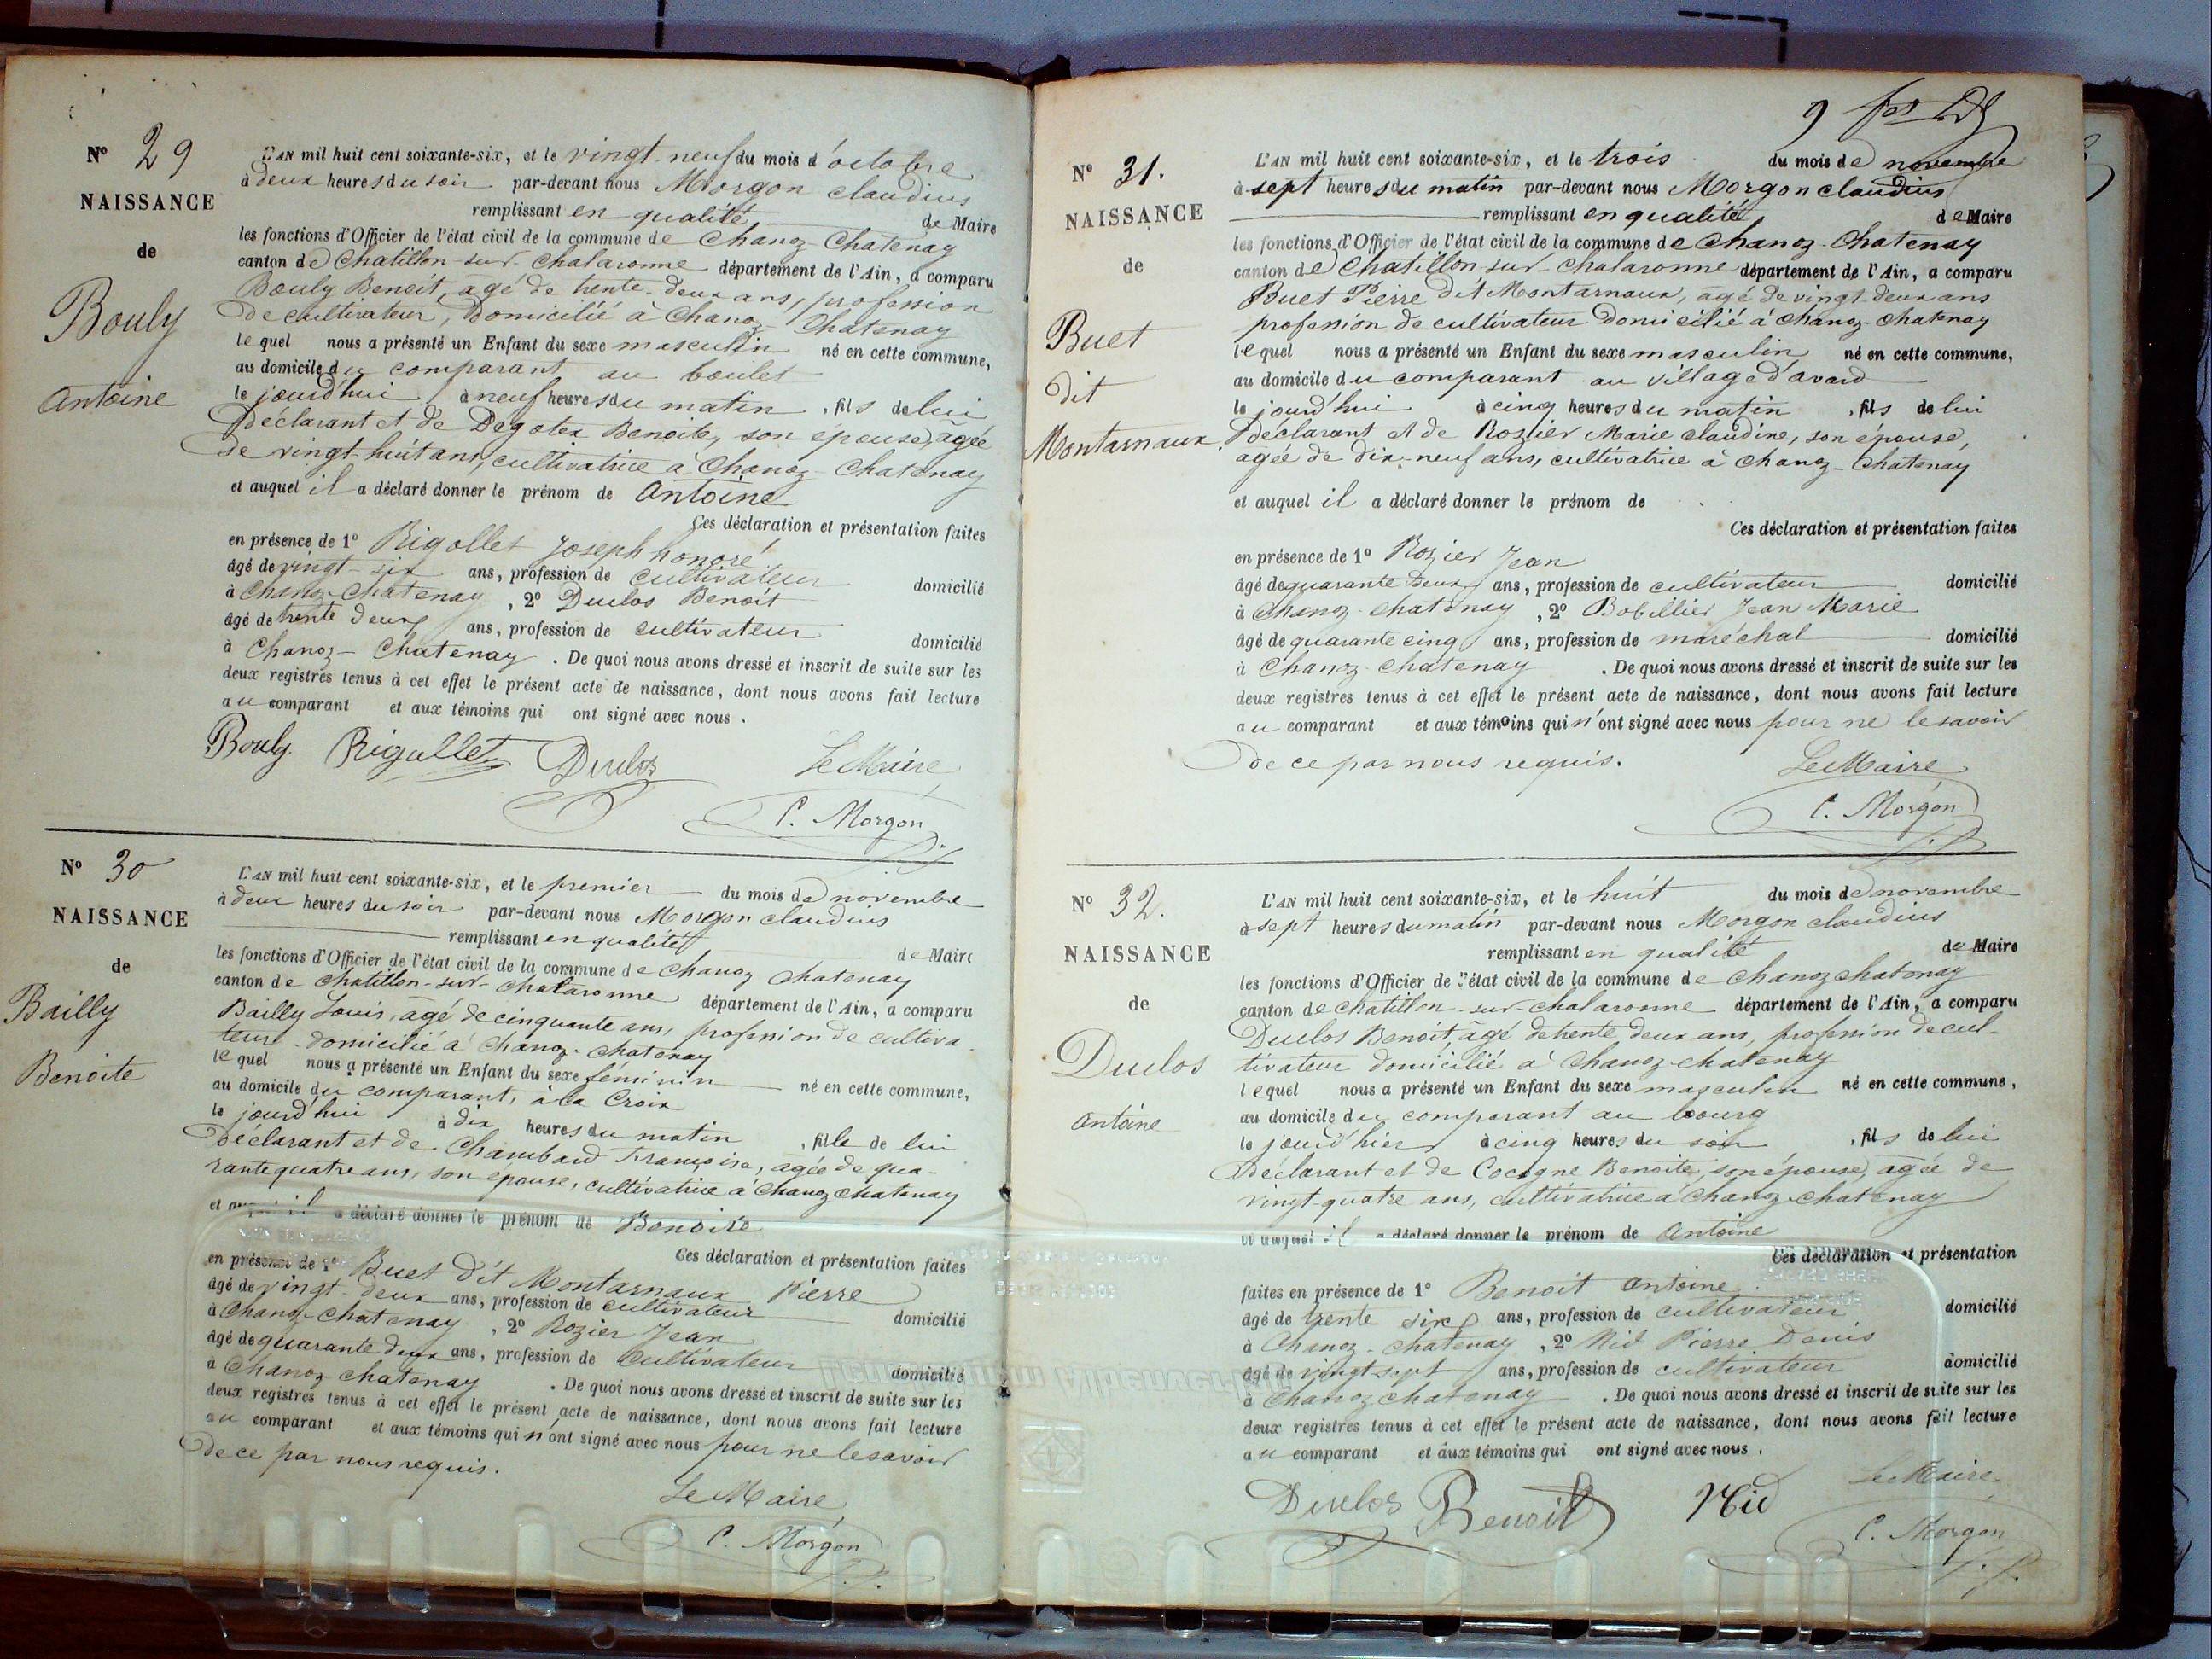 N° 29
NAISSANCE
de
Bouly
Antoine
L'AN mil huit cent soixante-six, et le vingt-neuf du mois d'octobre
à deux heures du soir par-devant nous Morgon claudius
remplissant en qualité de Maire
les fonctions d'Officier de l'état civil de la commune de Chanoz-Chatenay
canton de Chatillon-sur-Chalaronne département de l'Ain, a comparu
Bouly Benoit, agé de trente-deux ans, profession
de cultivateur, domicilié à Chanoz-Chatenay
lequel nous a présenté un Enfant du sexe masculin né en cette commune,
au domicile du comparant au boulet
le jourd'hui à neuf heures du matin, fils de lui
Déclarant et de Degotex Benoite, son épouse, âgée
de vingt-huit ans, cultivatrice à Chanoz-Chatenay
et auquel il a déclaré donner le prénom de Antoine
Ces déclaration et présentation faites
en présence de 1° Rigollet Joseph honoré
âgé de vingt-six ans, profession de cultivateur domicilié
à Chanoz-Chatenay, 2° Duclos Benoit
âgé de trente deux ans, profession de cultivateur domicilié
à Chanoz-Chatenay. De quoi nous avons dressé et inscrit de suite sur les
deux registres tenus à cet effet le présent acte de naissance, dont nous avons fait lecture
au comparant et aux témoins qui ont signé avec nous.
Bouly Rigollet Duclos Le Maire
C. Morgon
N° 30
NAISSANCE
de
Bailly
Benoite
L'AN mil huit cent soixante-six, et le premier du mois de novembre
à deux heures du soir par-devant nous Morgon claudius
remplissant en qualité de Maire
les fonctions d'Officier de l'état civil de la commune de Chanoz Chatenay
canton de Chatillon-sur-Chalaronne département de l'Ain, a comparu
Bailly Louis, âgé de cinquante ans, profession de cultiva-
teur domicilié à Chanoz-Chatenay
lequel nous a présenté un Enfant du sexe féminin né en cette commune,
au domicile du comparant, à la Croix
le jourd'hui à dix heures du matin, fille de lui
Déclarant et de Chambard Françoise, agée de qua-
rante quatre ans, son épouse, cultivatrice à Chanoz Chatenay
et auquel il a déclaré donner le prénom de Benoite
Ces déclaration et présentation faites
en présence de 1° Buet dit Montarnaux Pierre
âgé de vingt-deux ans, profession de cultivateur domicilié
à Chanoz-Chatenay, 2° Rozier Jean
âgé de quarante deux ans, profession de Cultivateur domicilié
à Chanoz-Chatenay. De quoi nous avons dressé et inscrit de suite sur les
deux registres tenus à cet effet le présent acte de naissance, dont nous avons fait lecture
au comparant et aux témoins qui n'ont signé avec nous pour ne le savoir
de ce par nous requis.
Le Maire
C. Morgon
9
N° 31.
NAISSANCE
de
Buet
dit
Montarnaux
L'AN mil huit cent soixante-six, et le trois du mois de novembre
à sept heures du matin par-devant nous Morgon claudius
remplissant en qualité de Maire
les fonctions d'Officier de l'état civil de la commune de Chanoz-Chatenay
canton de Chatillon-sur-Chalaronne département de l'Ain, a comparu
Buet Pierre dit Montarnaux, âgé de vingt-deux ans
profession de cultivateur domicilié à Chanoz-Chatenay
lequel nous a présenté un Enfant du sexe masculin né en cette commune,
au domicile du comparant au village d'avard
le jourd'hui à cinq heures du matin, fils de lui
Déclarant et de Rozier Marie claudine, son épouse,
agée de dix-neuf ans, cultivatrice à Chanoz-Chatenay
et auquel il a déclaré donner le prénom de
Ces déclaration et présentation faites
en présence de 1° Rozier Jean
âgé de quarante deux ans, profession de cultivateur domicilié
à Chanoz-Chatenay, 2° Bobillier Jean Marie
âgé de quarante cinq ans, profession de maréchal domicilié
à Chanoz-Chatenay. De quoi nous avons dressé et inscrit de suite sur les
deux registres tenus à cet effet le présent acte de naissance, dont nous avons fait lecture
au comparant et aux témoins qui n'ont signé avec nous pour ne le savoir
de ce par nous requis.
Le Maire
C. Morgon
N° 32.
NAISSANCE
de
Duclos
Antoine
L'AN mil huit cent soixante-six, et le huit du mois de novembre
à sept heures du matin par-devant nous Morgon claudius
remplissant en qualité de Maire
les fonctions d'Officier de l'état civil de la commune de Chanoz Chatenay
canton de Chatillon-sur-Chalaronne département de l'Ain, a comparu
Duclos Benoit, âgé de trente deux ans, profession de cul-
tivateur domicilié à Chanoz-Chatenay
lequel nous a présenté un Enfant du sexe masculin né en cette commune,
au domicile du comparant au bourg
le jour d'hier à cinq heures du soir, fils de lui
Déclarant et de Cocogne Benoite, son épouse, agée de
vingt-quatre ans, cultivatrice à Chanoz-Chatenay
et auquel il a déclaré donner le prénom de Antoine
Ces déclaration et présentation
faites en présence de 1° Benoit Antoine
âgé de trente six ans, profession de cultivateur domicilié
à Chanoz-Chatenay, 2° Nid Pierre Denis
âgé de vingt-sept ans, profession de cultivateur domicilié
à Chanoz Chatenay. De quoi nous avons dressé et inscrit de suite sur les
deux registres tenus à cet effet le présent acte de naissance, dont nous avons fait lecture
au comparant et aux témoins qui ont signé avec nous.
Duclos Benoit Nid Le Maire
C. Morgon